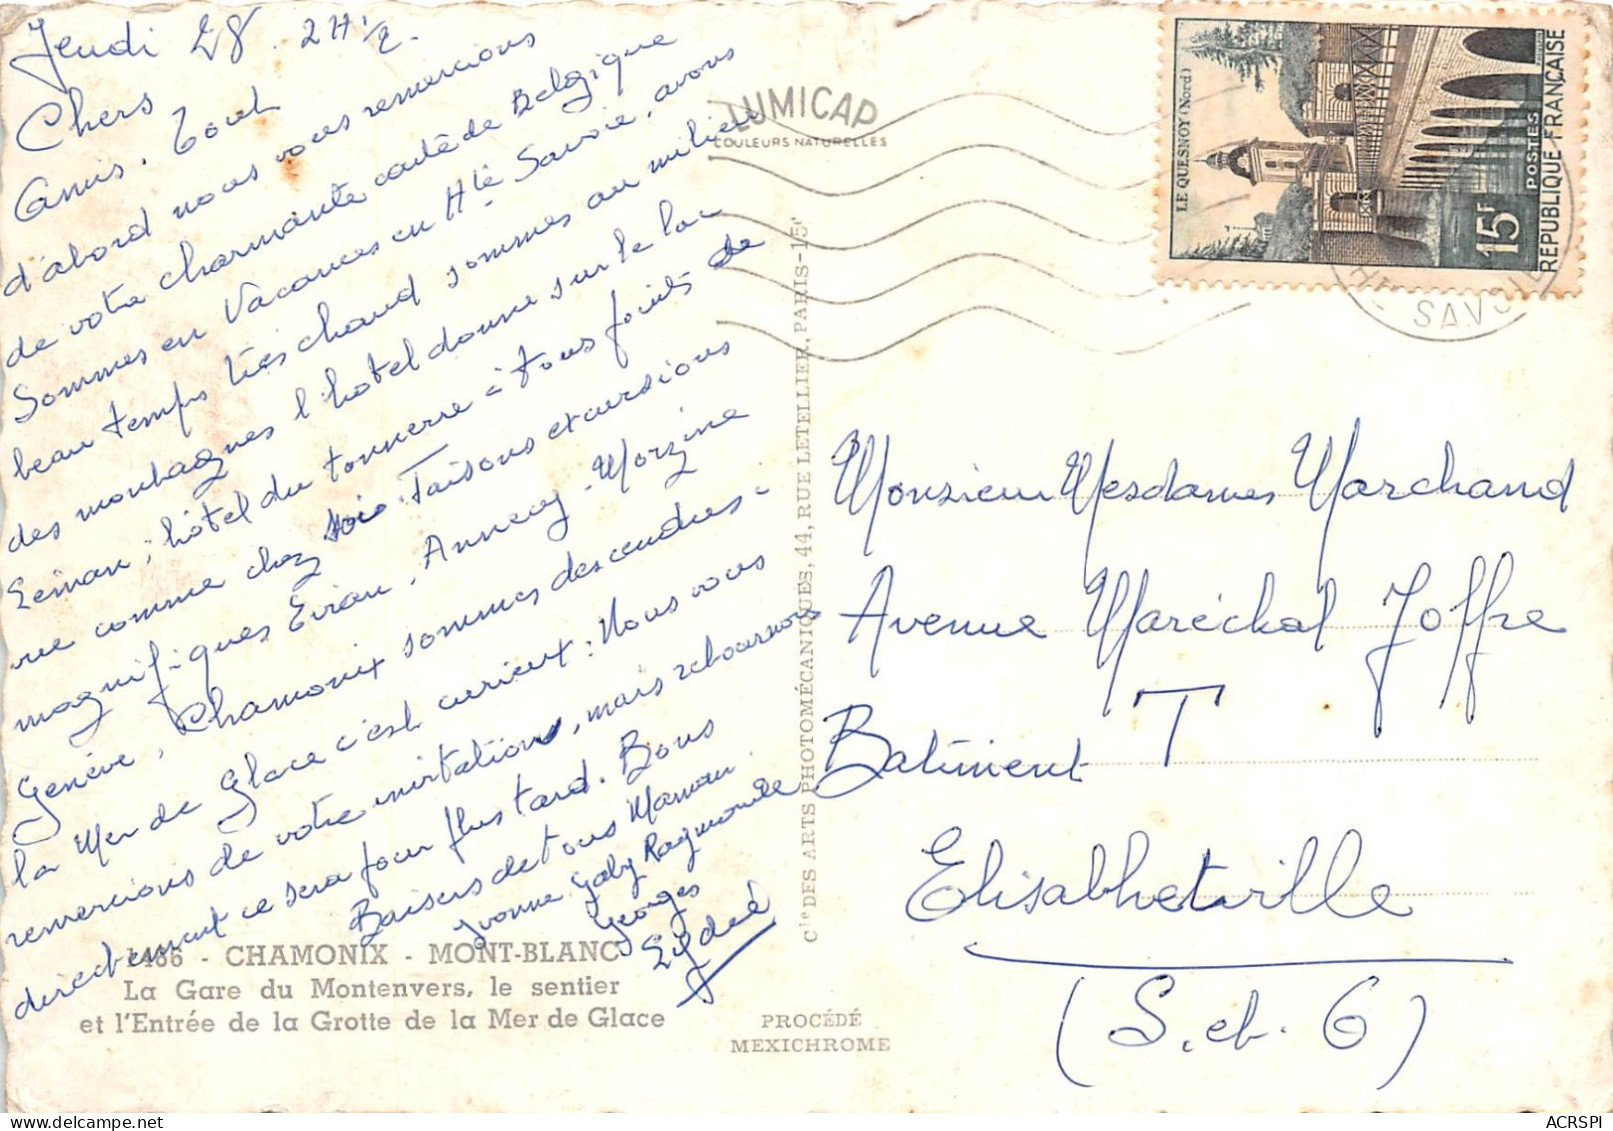 Jeudi 28. 2H 1/2.
Chers
Amis. Tout
d'abord nous vous remercions
de votre charmante carte de Belgique
Sommes en Vacances en Hte Savoie, avons
beau temps très chaud sommes au milieu
des montagnes l'hotel donne sur le lac
Léman; hôtel du tonnerre à tous points de
vue comme chez soio. Faisons excursions
magnifiques Evian, Annecy - Morzine
Genève, Chamonix sommes descendues -
la Mer de Glace c'est curieux; Nous vous
remercions de votre invitation, mais retournons
directement ce sera pour plus tard. Bons
Baisers de tous Maman
Yvonne Gaby Raymonde
Georges
1486 - CHAMONIX - MONT-BLANC
La Gare du Montenvers, le sentier
et l'Entrée de la Grotte de la Mer de Glace
PROCÉDÉ
MEXICHROME
Cie DES ARTS PHOTOMÉCANIQUES, 44, RUE LETELLIER, PARIS-15e
LUMICAP
COULEURS NATURELLES
LE QUESNOY (Nord)
15F
POSTES
REPUBLIQUE FRANÇAISE
HTE SAVOIE
Monsieur Mesdames Marchand
Avenue Maréchal Joffre
Batiment T
Elisabhetville
(S. et. O)
ACRSPI